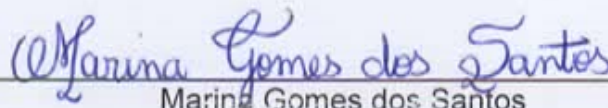 Marina Gomes dos Santos
Marina Gomes dos Santos